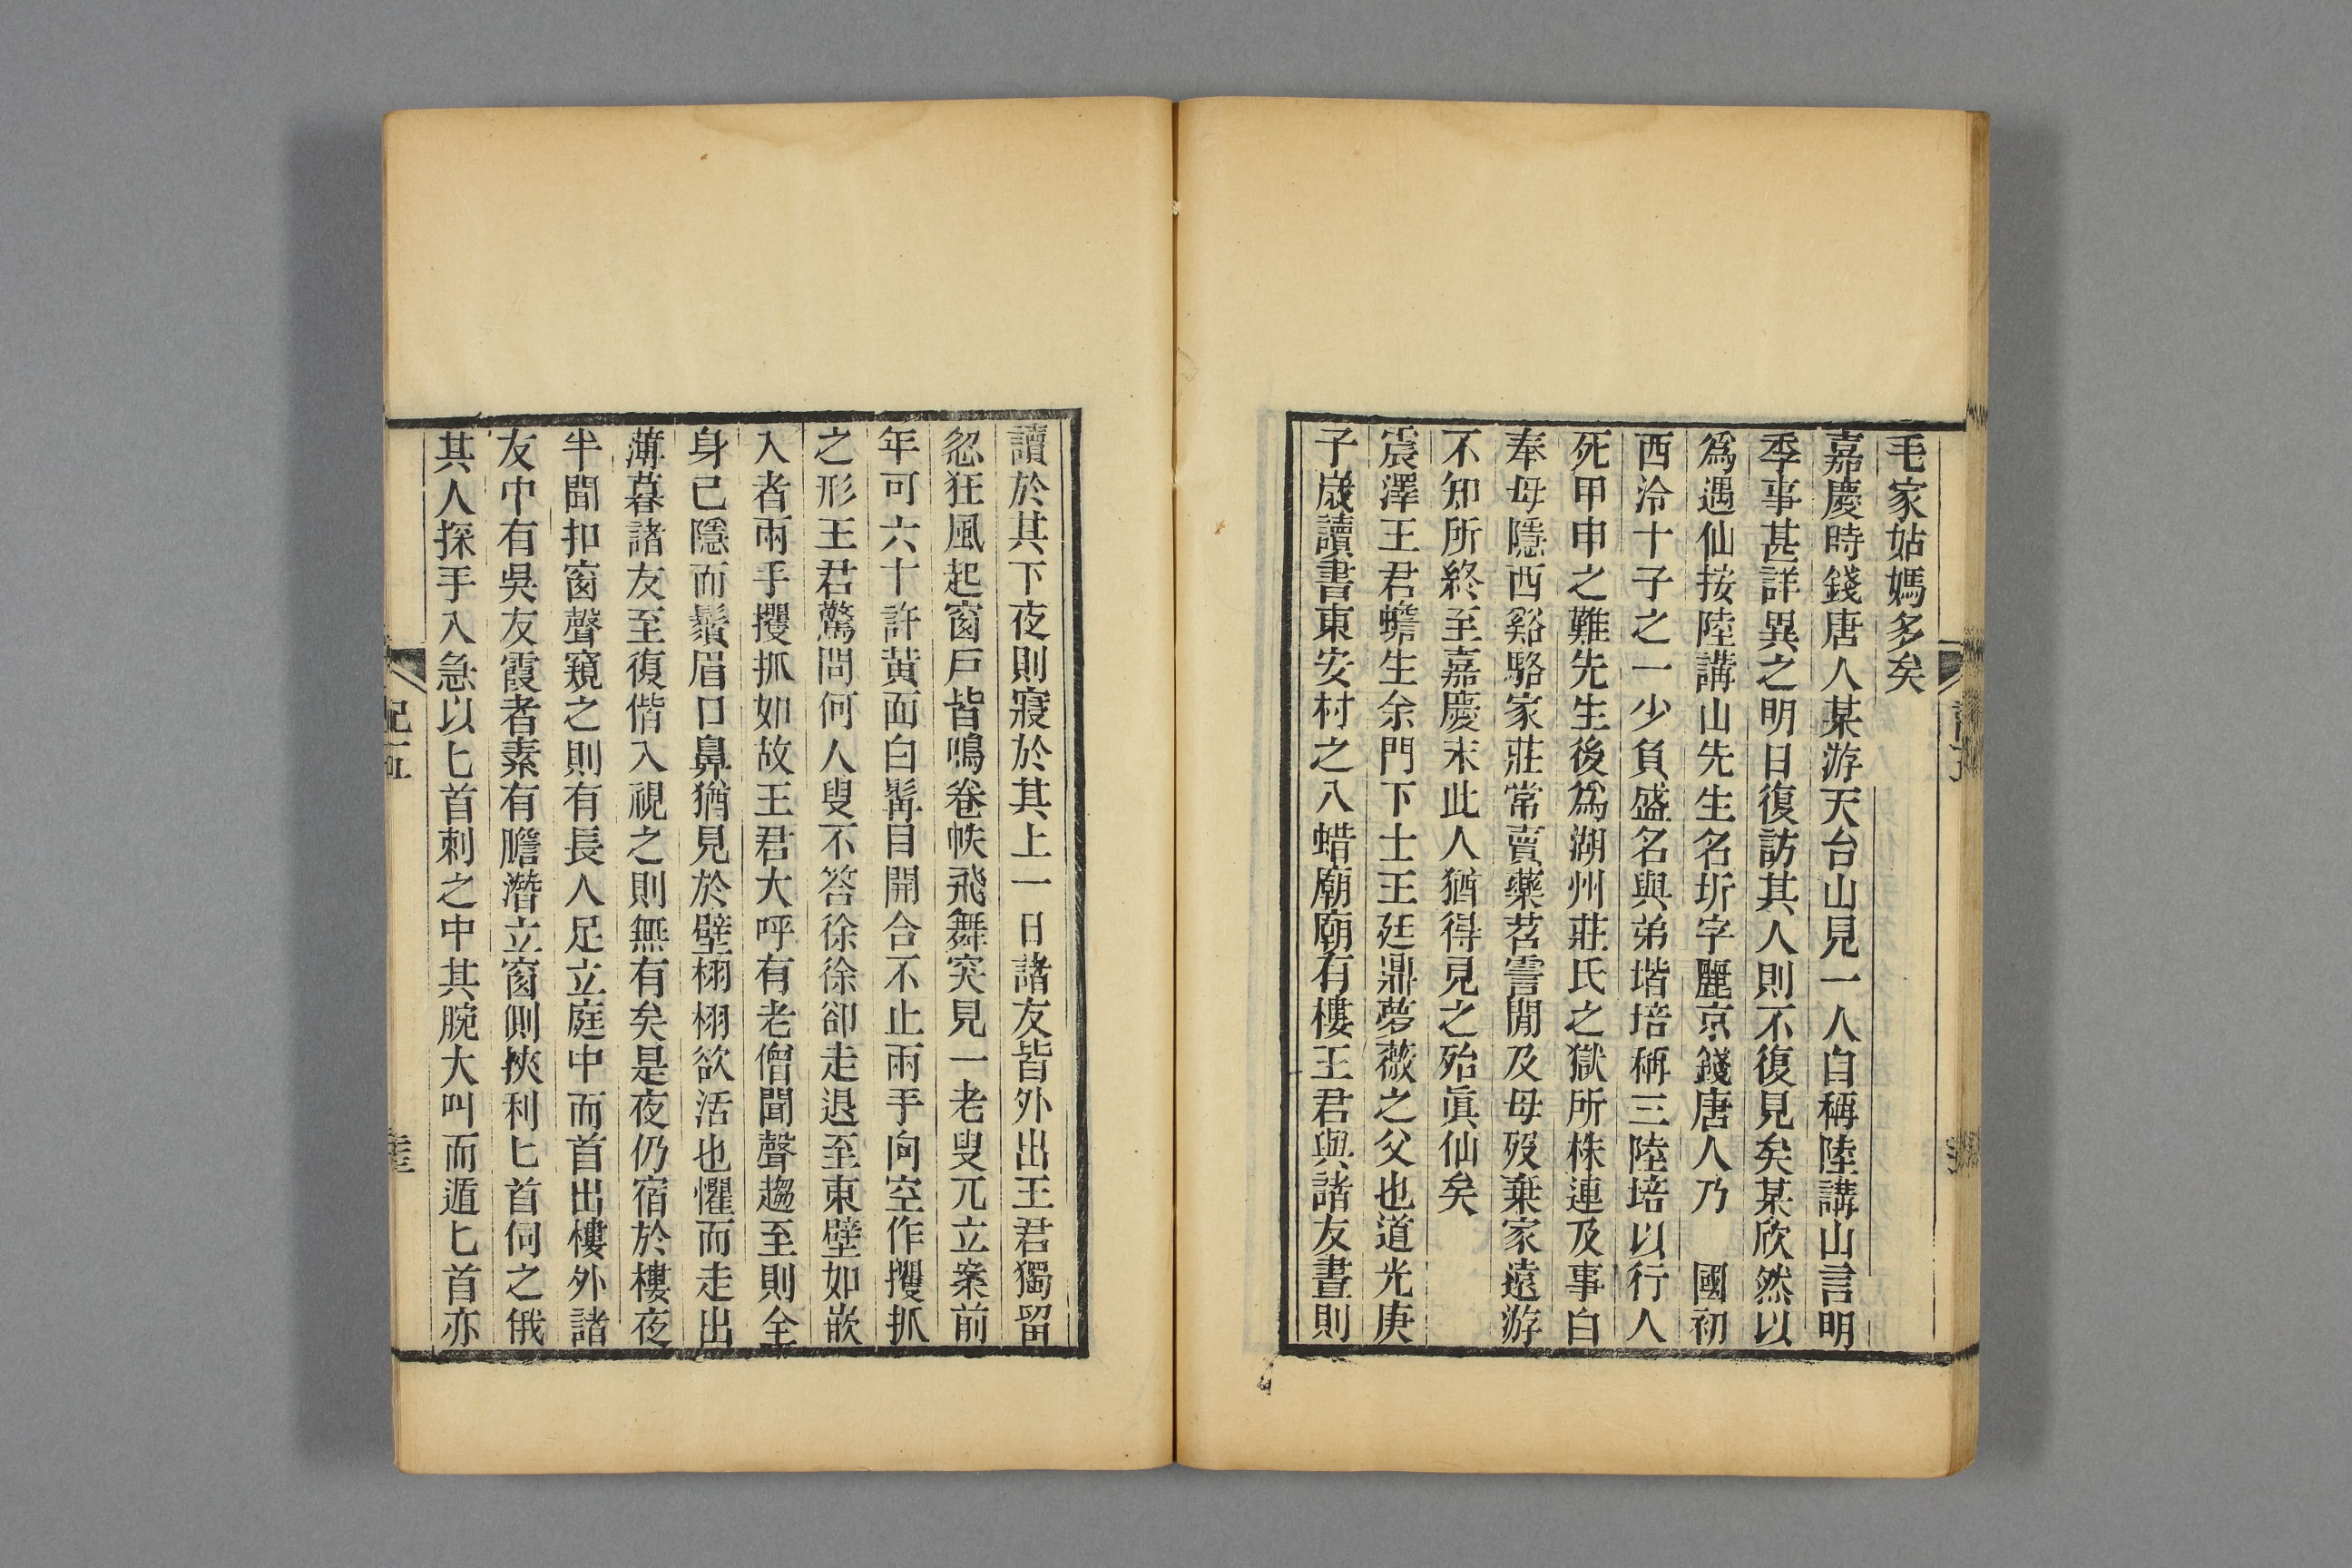 毛家姑媽多矣
嘉慶時錢唐人某游天台山見一人自稱陸講山言明
季事甚詳異之明日復訪其人則不復見矣某欣然以
爲遇仙按陸講山先生名圻字麗京錢唐人乃　國初
西泠十子之一少負盛名與弟堦培稱三陸培以行人
死甲申之難先生後爲湖州莊氏之獄所株連及事白
奉母隱西谿駱家莊常賣藥苕霅閒及母歿棄家遠游
不知所終至嘉慶末此人猶得見之殆眞仙矣
震澤王君蟾生余門下士王廷鼎夢薇之父也道光庚
子歲讀書東安村之八蜡廟廟有樓王君與諸友晝則
讀於其下夜則寢於其上一日諸友皆外出王君獨留
忽狂風起窗戶皆鳴卷帙飛舞突見一老叟兀立案前
年可六十許黃面白髯目開合不止兩手向空作攫抓
之形王君驚問何人叟不答徐徐卻走退至東壁如嵌
入者兩手攫抓如故王君大呼有老僧聞聲趨至則全
身已隱而鬚眉口鼻猶見於壁栩栩欲活也懼而走出
薄暮諸友至復偕入視之則無有矣是夜仍宿於樓夜
半聞扣窗聲窺之則有長人足立庭中而首出樓外諸
友中有吳友霞者素有膽潛立窗側挾利匕首伺之俄
其人探手入急以匕首刺之中其腕大叫而遁匕首亦
記五